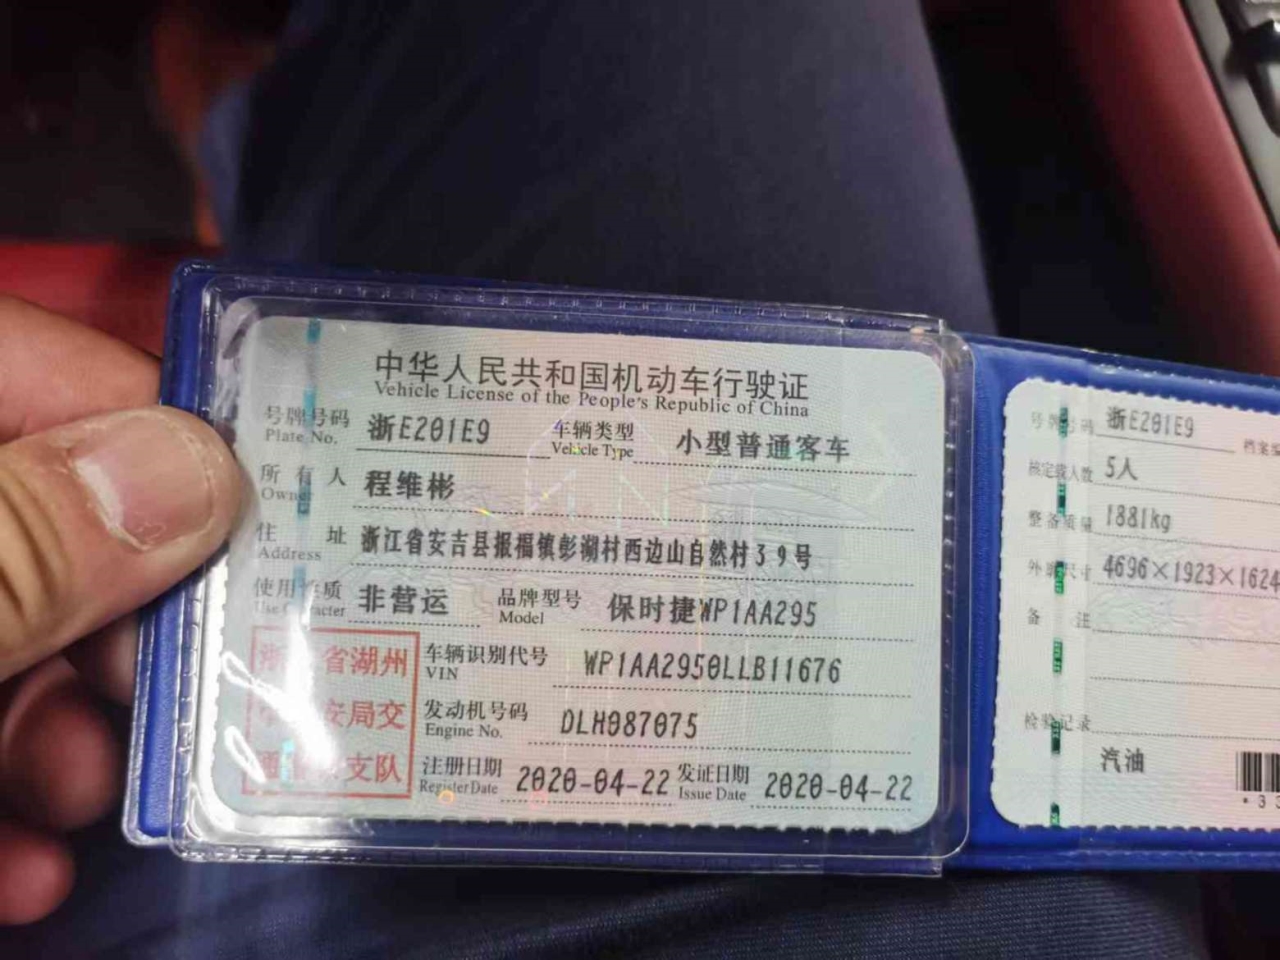 中华人民共和国机动车行驶证
Vehicle License of the People's Republic of China
号牌号码 浙E201E9 车辆类型 小型普通客车
Plate No. Vehicle Type
所有人 程维彬
Owner
住址 浙江省安吉县报福镇彭湖村西边山自然村39号
Address
使用性质 非营运 品牌型号 保时捷WP1AA295
Use Character Model
车辆识别代号 WP1AA2950LLB11676
VIN
发动机号码 DLH087075
Engine No.
注册日期 2020-04-22 发证日期 2020-04-22
Register Date Issue Date
省湖州
安局交
支队
号牌号码 浙E201E9
核定载人数 5人
整备质量 1881kg
外廓尺寸 4696×1923×1624
备注
检验记录
汽油